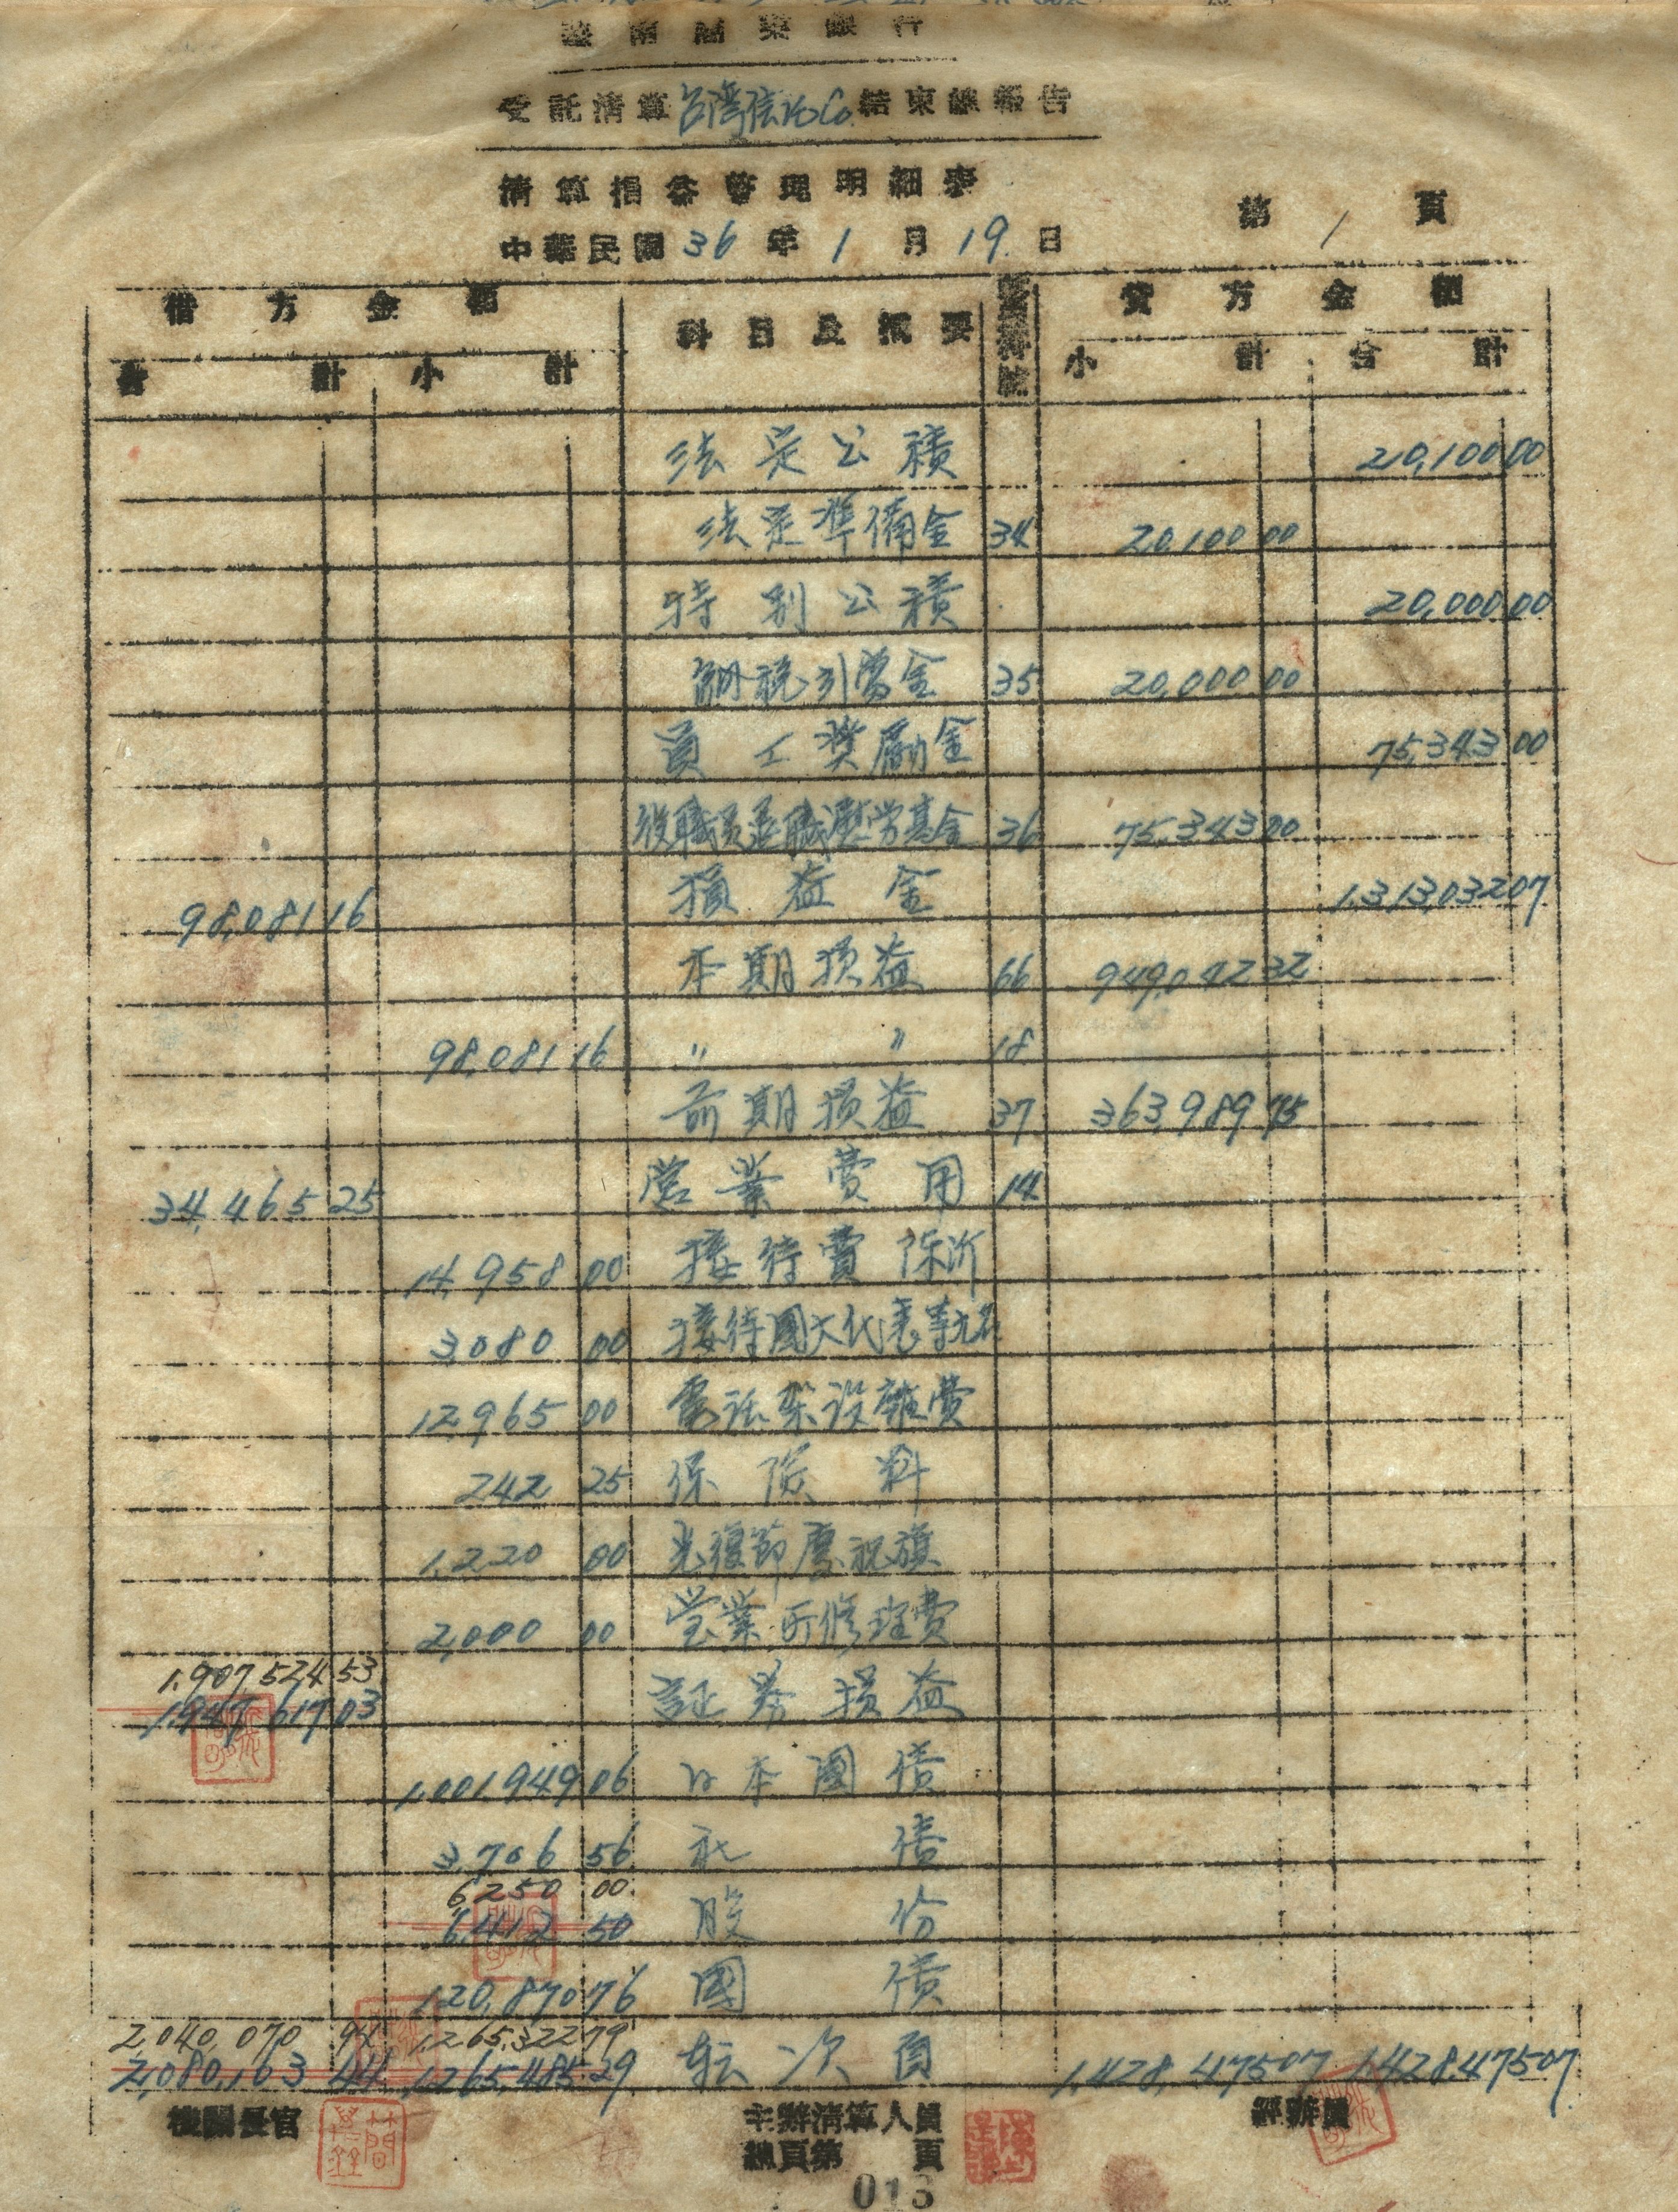 臺灣商業銀行
受託清算台灣信託Co.結束總報告
清算損益管理明細表
中華民國36年1月19日 第1頁
借方金額 科目及摘要 貸方金額
合計 小計 小計 合計
法定公積 20,100 00
法定準備金 34 20,100 00
特別公積 20,000 00
納稅引當金 35 20,000 00
員工獎勵金 75,343 00
役職員退職慰労基金 36 75,343 00
98,081 16 損益金 1,313,032 07
本期損益 66 949,042 32
98,081 16 〃 〃 18
前期損益 37 363,989 75
34,465 25 營業費用 14
14,958 00 接待費
3,080 00 接待國大代表
12,965 00 電話架設雜費
242 25 保險料
1,220 00 光復節慶祝旗
2,000 00 営業所修理費
1,907,524 53
1,947,617 03 証券損益
1,001,949 06 日本國債
3,706 56 社債
6,250 00
6,412 50 股份
120,870 76 國債
2,040,070 94 1,265,322 79
2,080,163 44 1,265,485 29 転次頁 1,428,475 07 1,428,475 07
機關長官 主辦清算人員 經辦員
總頁第 頁
013